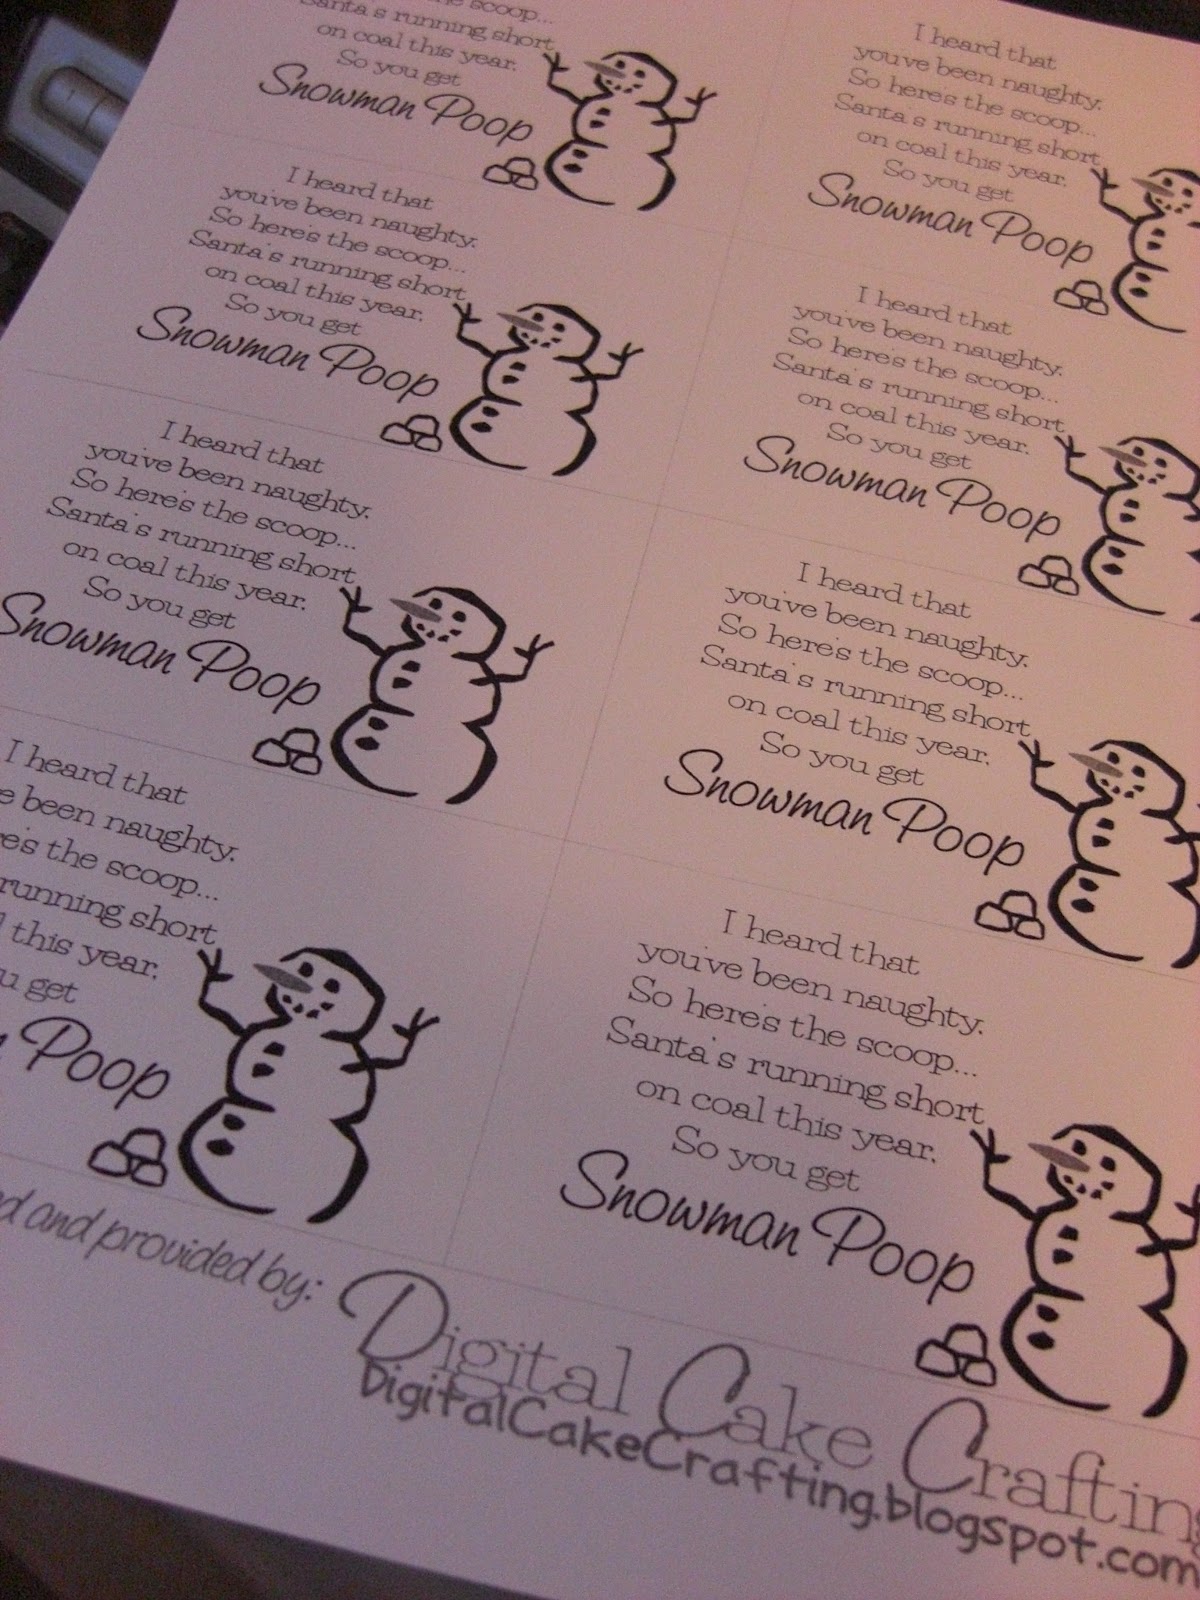 the scoop...
Santa's running short
on coal this year.
So you get
Snowman Poop
I heard that
you've been naughty.
So here's the scoop...
Santa's running short
on coal this year.
So you get
Snowman Poop
I heard that
you've been naughty.
So here's the scoop...
Santa's running short
on coal this year.
So you get
Snowman Poop
I heard that
been naughty.
the scoop...
running short
this year.
get
Poop
I heard that
you've been naughty.
So here's the scoop...
Santa's running short
on coal this year.
So you get
Snowman Poop
I heard that
you've been naughty.
So here's the scoop...
Santa's running short
on coal this year.
So you get
Snowman Poop
I heard that
you've been naughty.
So here's the scoop...
Santa's running short
on coal this year.
So you get
Snowman Poop
I heard that
you've been naughty.
So here's the scoop...
Santa's running short
on coal this year.
So you get
Snowman Poop
and provided by: Digital Cake Crafting
DigitalCakeCrafting.blogspot.com